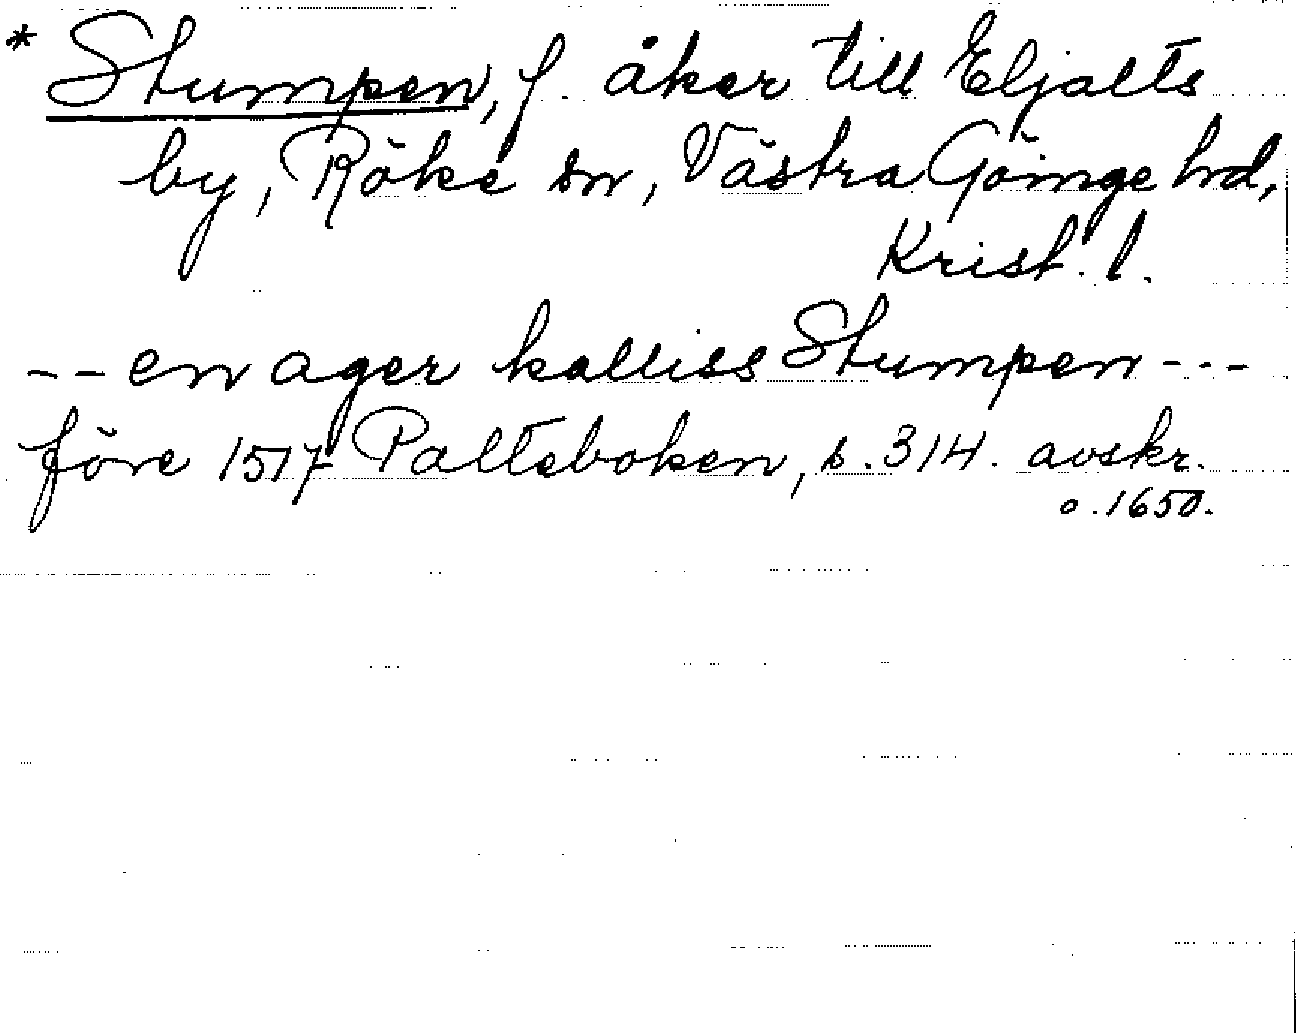 * Stumpen, f. åker till Eljalts
by, Röke sn, Västra Göinge hd,
Krist. l.
-- en ager kalliss Stumpen ---
före 1517 Palteboken, s. 314. avskr.
o. 1650.